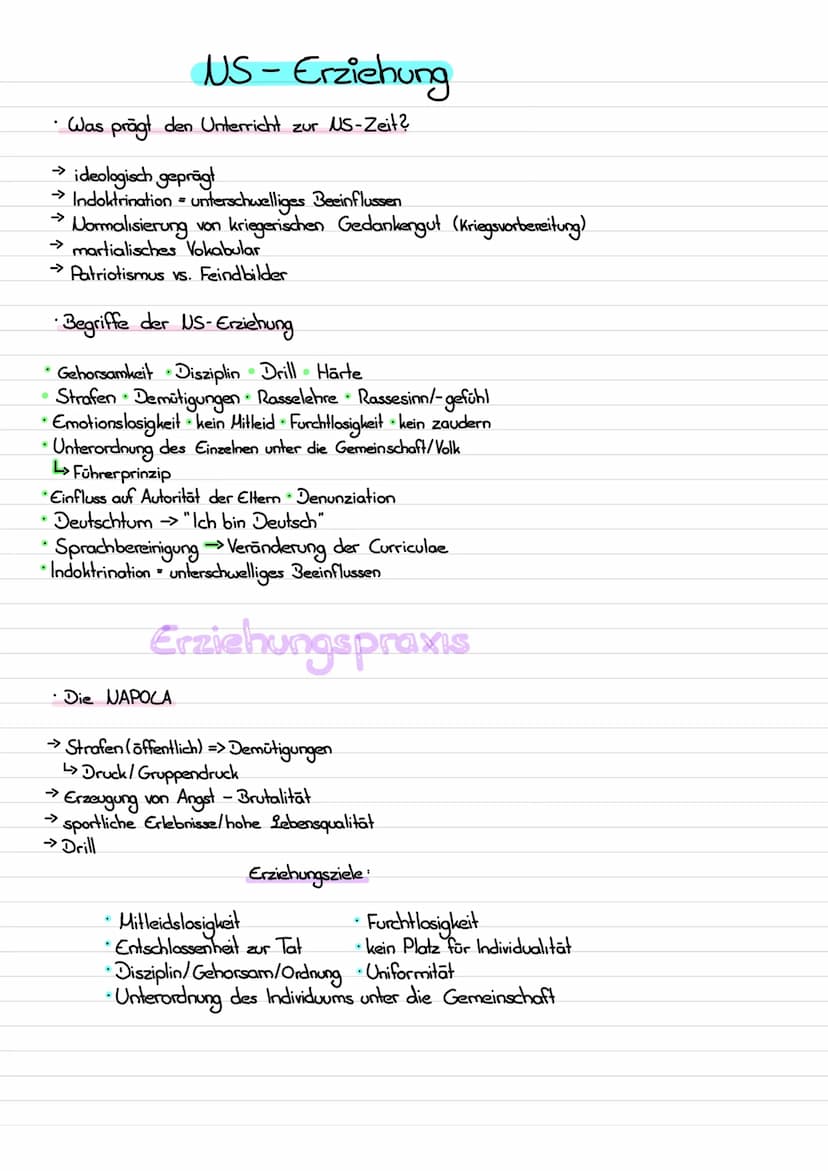 NS - Erziehung
· Was prägt den Unterricht zur NS-Zeit?
→ ideologisch geprägt
→ Indoktrination = unterschwelliges Beeinflussen
→ Normalisierung von kriegerischen Gedankengut (Kriegsvorbereitung)
→ martialisches Vokabular
→ Patriotismus vs. Feindbilder
· Begriffe der NS-Erziehung
• Gehorsamkeit • Disziplin • Drill • Härte
• Strafen • Demütigungen • Rasselehre • Rassesinn/-gefühl
• Emotionslosigkeit • kein Mitleid • Furchtlosigkeit • kein zaudern
• Unterordnung des Einzelnen unter die Gemeinschaft/Volk
↳ Führerprinzip
• Einfluss auf Autorität der Eltern • Denunziation
• Deutschtum → "Ich bin Deutsch"
• Sprachbereinigung → Veränderung der Curriculae
• Indoktrination = unterschwelliges Beeinflussen
Erziehungspraxis
· Die NAPOLA
→ Strafen (öffentlich) => Demütigungen
↳ Druck/Gruppendruck
→ Erzeugung von Angst - Brutalität
→ sportliche Erlebnisse/hohe Lebensqualität
→ Drill
Erziehungsziele:
• Mitleidslosigkeit • Furchtlosigkeit
• Entschlossenheit zur Tat • kein Platz für Individualität
• Disziplin/Gehorsam/Ordnung • Uniformität
• Unterordnung des Individuums unter die Gemeinschaft